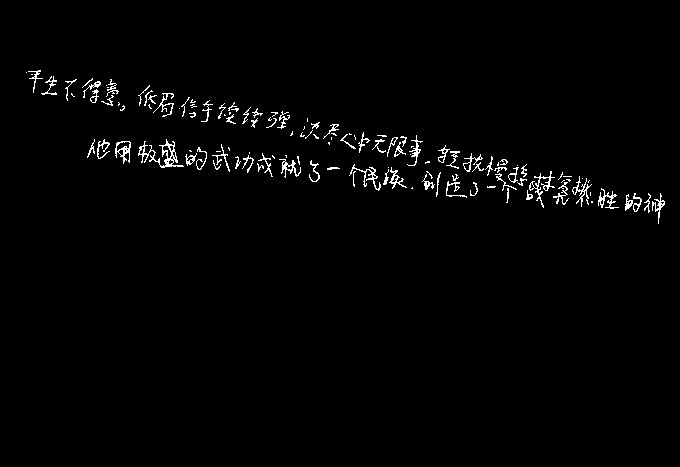 平生不得意。低眉信手续续弹,说尽心中无限事.轻拢慢捻抹复挑
他用极盛的武功成就了一个民族.创造了一个战无不胜的神